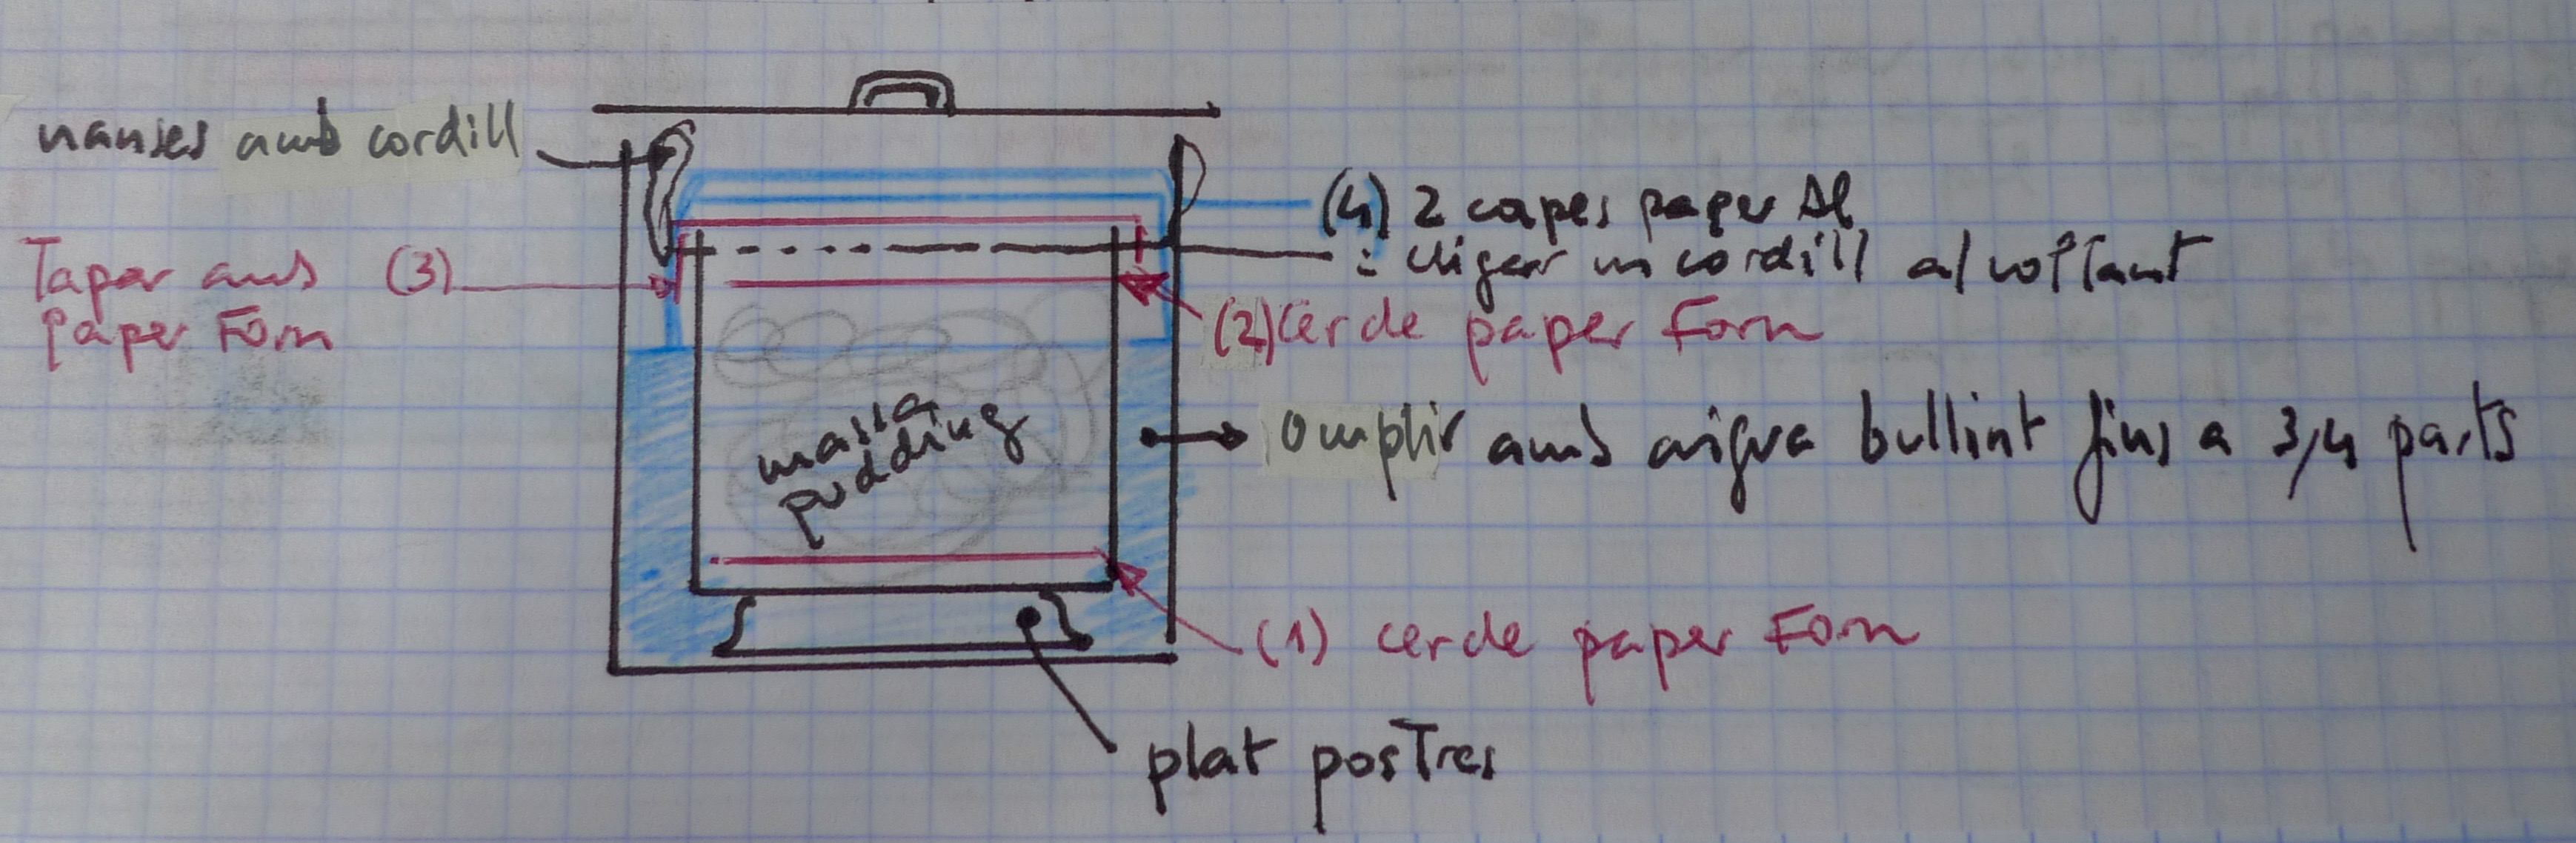 nanses amb cordill
(4) 2 capes paper Al
i lligar un cordill al voltant
Tapar amb (3)
paper Forn
(2) cerde paper Forn
massa
pudding
omplir amb aigua bullint fins a 3/4 parts
(1) cercle paper Forn
plat postres